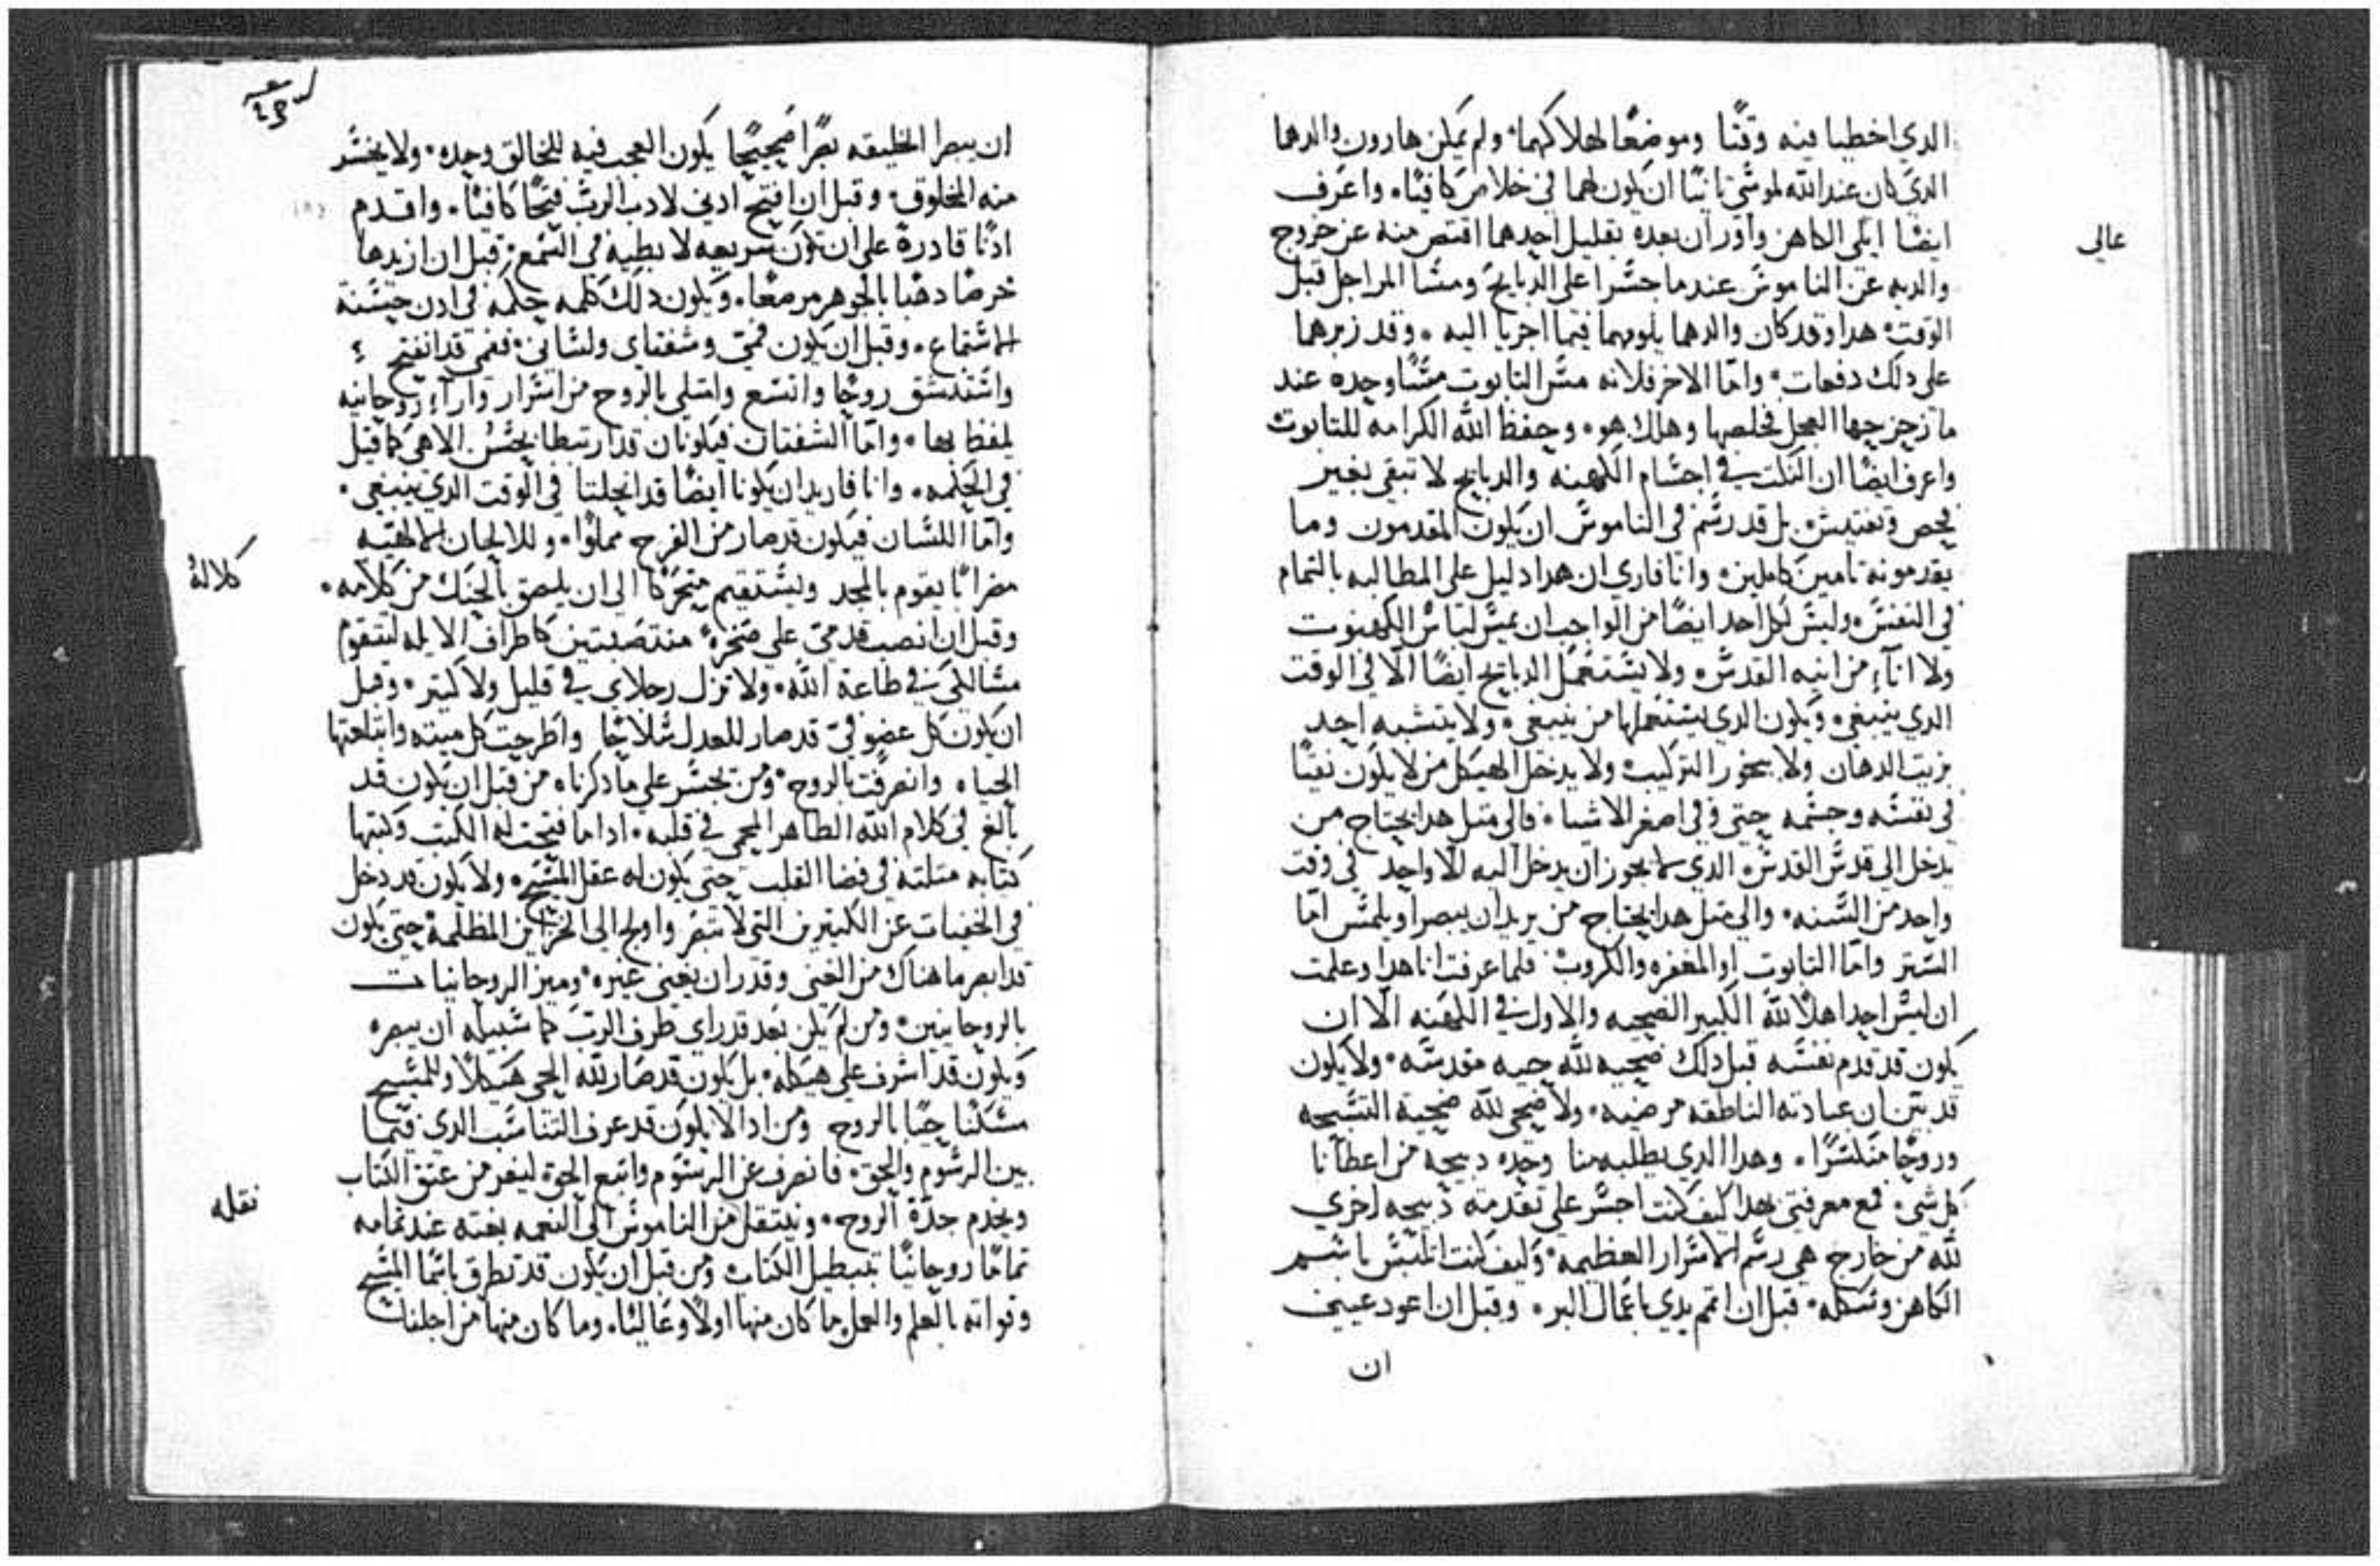 الدي اخطيا فيه وقتًا وموضعًا لهلاكهما ولم يمكن هارون والدهما
الدي كان عند الله لموسي تانيًا ان يكون لهما في خلاص كافيًا واعرف
ايضًا ايلي الكاهن واوران بعده بقليل احدهما اقتص منه عن خروج
عالي
والديه عن الناموس عندما جسرا على الدبايح ومسا المراجل قبل
الوقت هدا وقد كان والدهما يلومهما فيما اجريا اليه وقد زبرهما
على دلك دفعات واما الاخر فلانه مس التابوت مسًا وحده عند
ما زحزحها العجل فخلصها وهلك هو وحفظ الله الكرامه للتابوت
واعرف ايضًا ان النكت في اجسام الكهنه والدبايح لا تبقى بغير
فحص وتفتيش بل قد رسم في الناموس ان يكون المقدمون وما
يقدمونه تامين كاملين وانا فاري ان هدا دليل على المطالبه بالتمام
في النفس وليس لكل احد ايضًا من الواجب ان يمس لباس الكهنوت
ولا اناء من انيه القدس ولا يستعمل الدبايح ايضًا الا في الوقت
الدي ينبغي ويكون الدي يستعملها من ينبغي ولا يتشبه احد
بزيت الدهان ولا بخور التركيب ولا يدخل الهيكل من لا يكون نقيًا
في نفسه وجسمه حتى وفي اصغر الاشيا فالى متل هدا يحتاج من
يدخل الى قدس القدس الدي لا يجوز ان يدخل اليه الا واحد في وقت
واحد من السنه والى متل هدا يحتاج من يريد ان يبصر او يلمس اما
الستر واما التابوت او المغفره والكروب فلما عرفت انا هدا وعلمت
ان ليس احدا اهلا لله الكبير الضحيه والاول في الكهنه الا ان
يكون قد قدم نفسه قبل دلك ضحيه لله حيه مقدسه ولا يكون
قد بين ان عبادته الناطقه مرضيه ولا ضحى لله ضحية التسبحه
وروحًا منكسرًا وهدا الدي يطلبه منا وحده دبيحه من اعطانا
كل شي فمع معرفتي بهدا كيف كنت اجسر على تقدمة دبيحه اخري
لله من خارج هي رسم الاسرار العظيمه وكيف كنت اتلبس باسم
الكاهن وشكله قبل ان اتمم يدي باعمال البر وقبل ان اعود عيني
ان
ان يبصرا الخليقه بصرًا صحيحًا يكون العجب فيه للخالق وحده ولا يخسر
منه المخلوق وقبل ان افتح ادني لادب الرب فتحًا كافيًا واقدم
ادنًا قادرة على ان تكون سريعه لا بطيه في السمع قبل ان ازيدها
خرصًا دهبا بالجوهر مرصعًا ويكون دلك كلمه حكمه في ادن حسنة
الاستماع وقبل ان يكون فمي وشفتاي ولساني ففمي قد انفتح
واستنشق روحًا واتسع وامتلى بالروح من اسرار واراء روحانيه
يلفظ بها واما الشفتان فيكونان قد ارتبطا بحس الاهي كما قيل
في الحكمه وانا فاريد ان يكونا ايضًا قد انحلتا في الوقت الدي ينبغي
واما اللسان فيكون قد صار من الفرح مملوًا وللالحان الالهيه
مضرابًا يقوم بالمجد ويستقيم متحركًا الى ان يلصق بالحنك من كلامه
كلاله
وقبل ان انصب قدمي على صخرة منتصبتين كاطراف الايله لتتقوم
مسالكي في طاعة الله ولا تزل رجلاي في قليل ولا كتير وقبل
ان يكون كل عضو في قد صار للعدل سلاحًا واطرحت كل ميته وابتلعتها
الحياه وانصرفت بالروح ومن يجسر على ما دكرناه من قبل ان يكون قد
بالغ في كلام الله الطاهر المحي في قلبه ادا ما فتحت له الكتب وكتبها
كتابه متلته في فضا القلب حتى يكون له عقل المسيح ولا يكون قد دخل
في الخفيات عن الكتيرين التي لا تبصر واولج الى الخزاين المظلمة حتى يكون
قد ابصر ما هناك من الغنى وقدر ان يغني غيره وميز الروحانيات
بالروحانيين ومن لم يكن بعد قد راي طرف الرب كما سبيله ان يبصره
ويكون قد اشرف على هيكله بل يكون قد صار لله الحي هيكلا وللمسيح
مسكنًا حيًا بالروح ومن ادا لا يكون قد عرف التناسب الدي فيما
بين الرسوم والحق فانصرف عن الرسوم واتبع الحق ليفر من عتق الكتاب
ويخدم جدة الروح وينتقل من الناموس الى النعمه بغته عند تمامه
نقله
تمامًا روحانيًا بتبطيل الكتاب ومن قبل ان يكون قد تطرق باسما المسيح
وقواته بالعلم والعمل ما كان منها اولًا وعاليًا وما كان منها من اجلنا